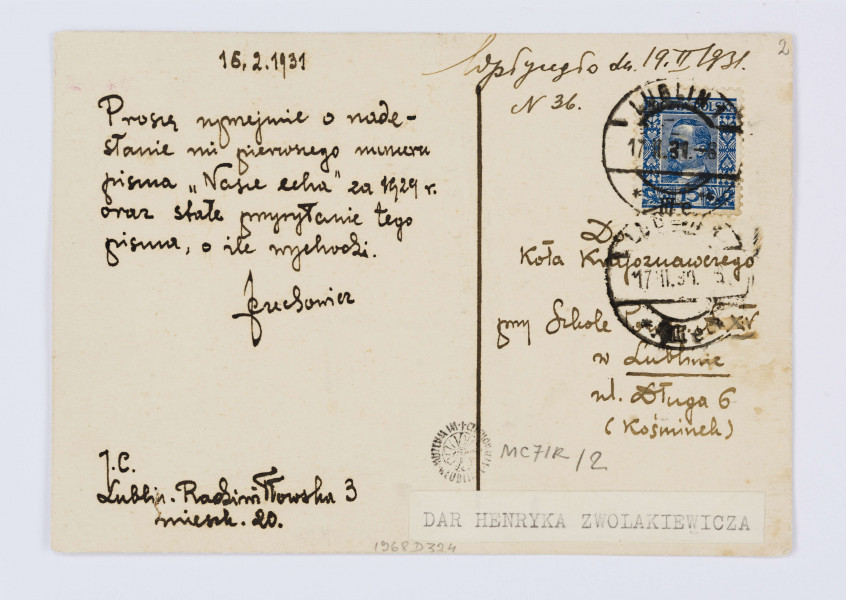 16.2.1931
Proszę uprzejmie o nade-
słanie mi pierwszego numeru
pisma „Nasze echa" za 1929 r.
oraz stałe przysyłanie tego
pisma, o ile wychodzi.
JCzechowicz
J.C.
Lublin. Radziwiłłowska 3
mieszk. 20.
Wpłynęło dn. 19.II 1931.
N 36.
2
LUBLIN 1
17.II.31.
15
LUBLIN 1
17.II.31.
Do
Koła Krajoznawczego
przy Szkole XV
w Lublinie
ul. Długa 6
(Kośminek)
MC71R/2
DAR HENRYKA ZWOLAKIEWICZA
1968D324